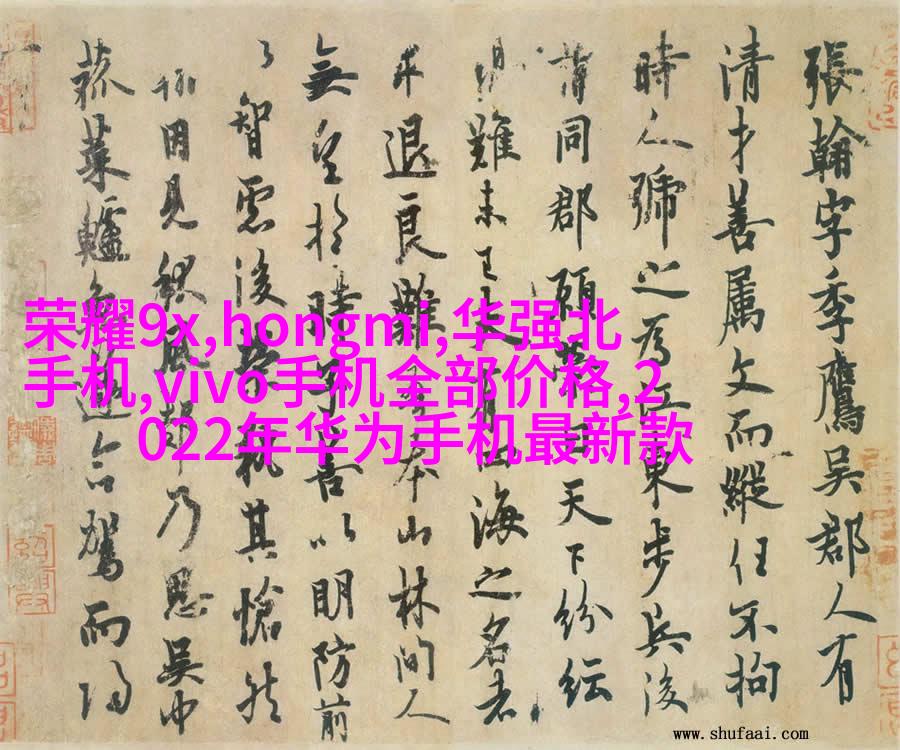 張翰字季鷹吳郡人有
清才善属文而縱任不拘
時人號之為江東步兵後
同郡顧榮曰天下紛紜
難未已夫有四海之名者
求退良難吾本山林間人
無望於時子善以明防前
以智慮後榮執其愴然
翰因見秋風起乃思吳中
菰菜鱸魚遂命駕而歸
荣耀9x,hongmi,华强北
手机,vivo手机全部价格,2
022年华为手机最新款
www.shufaai.com